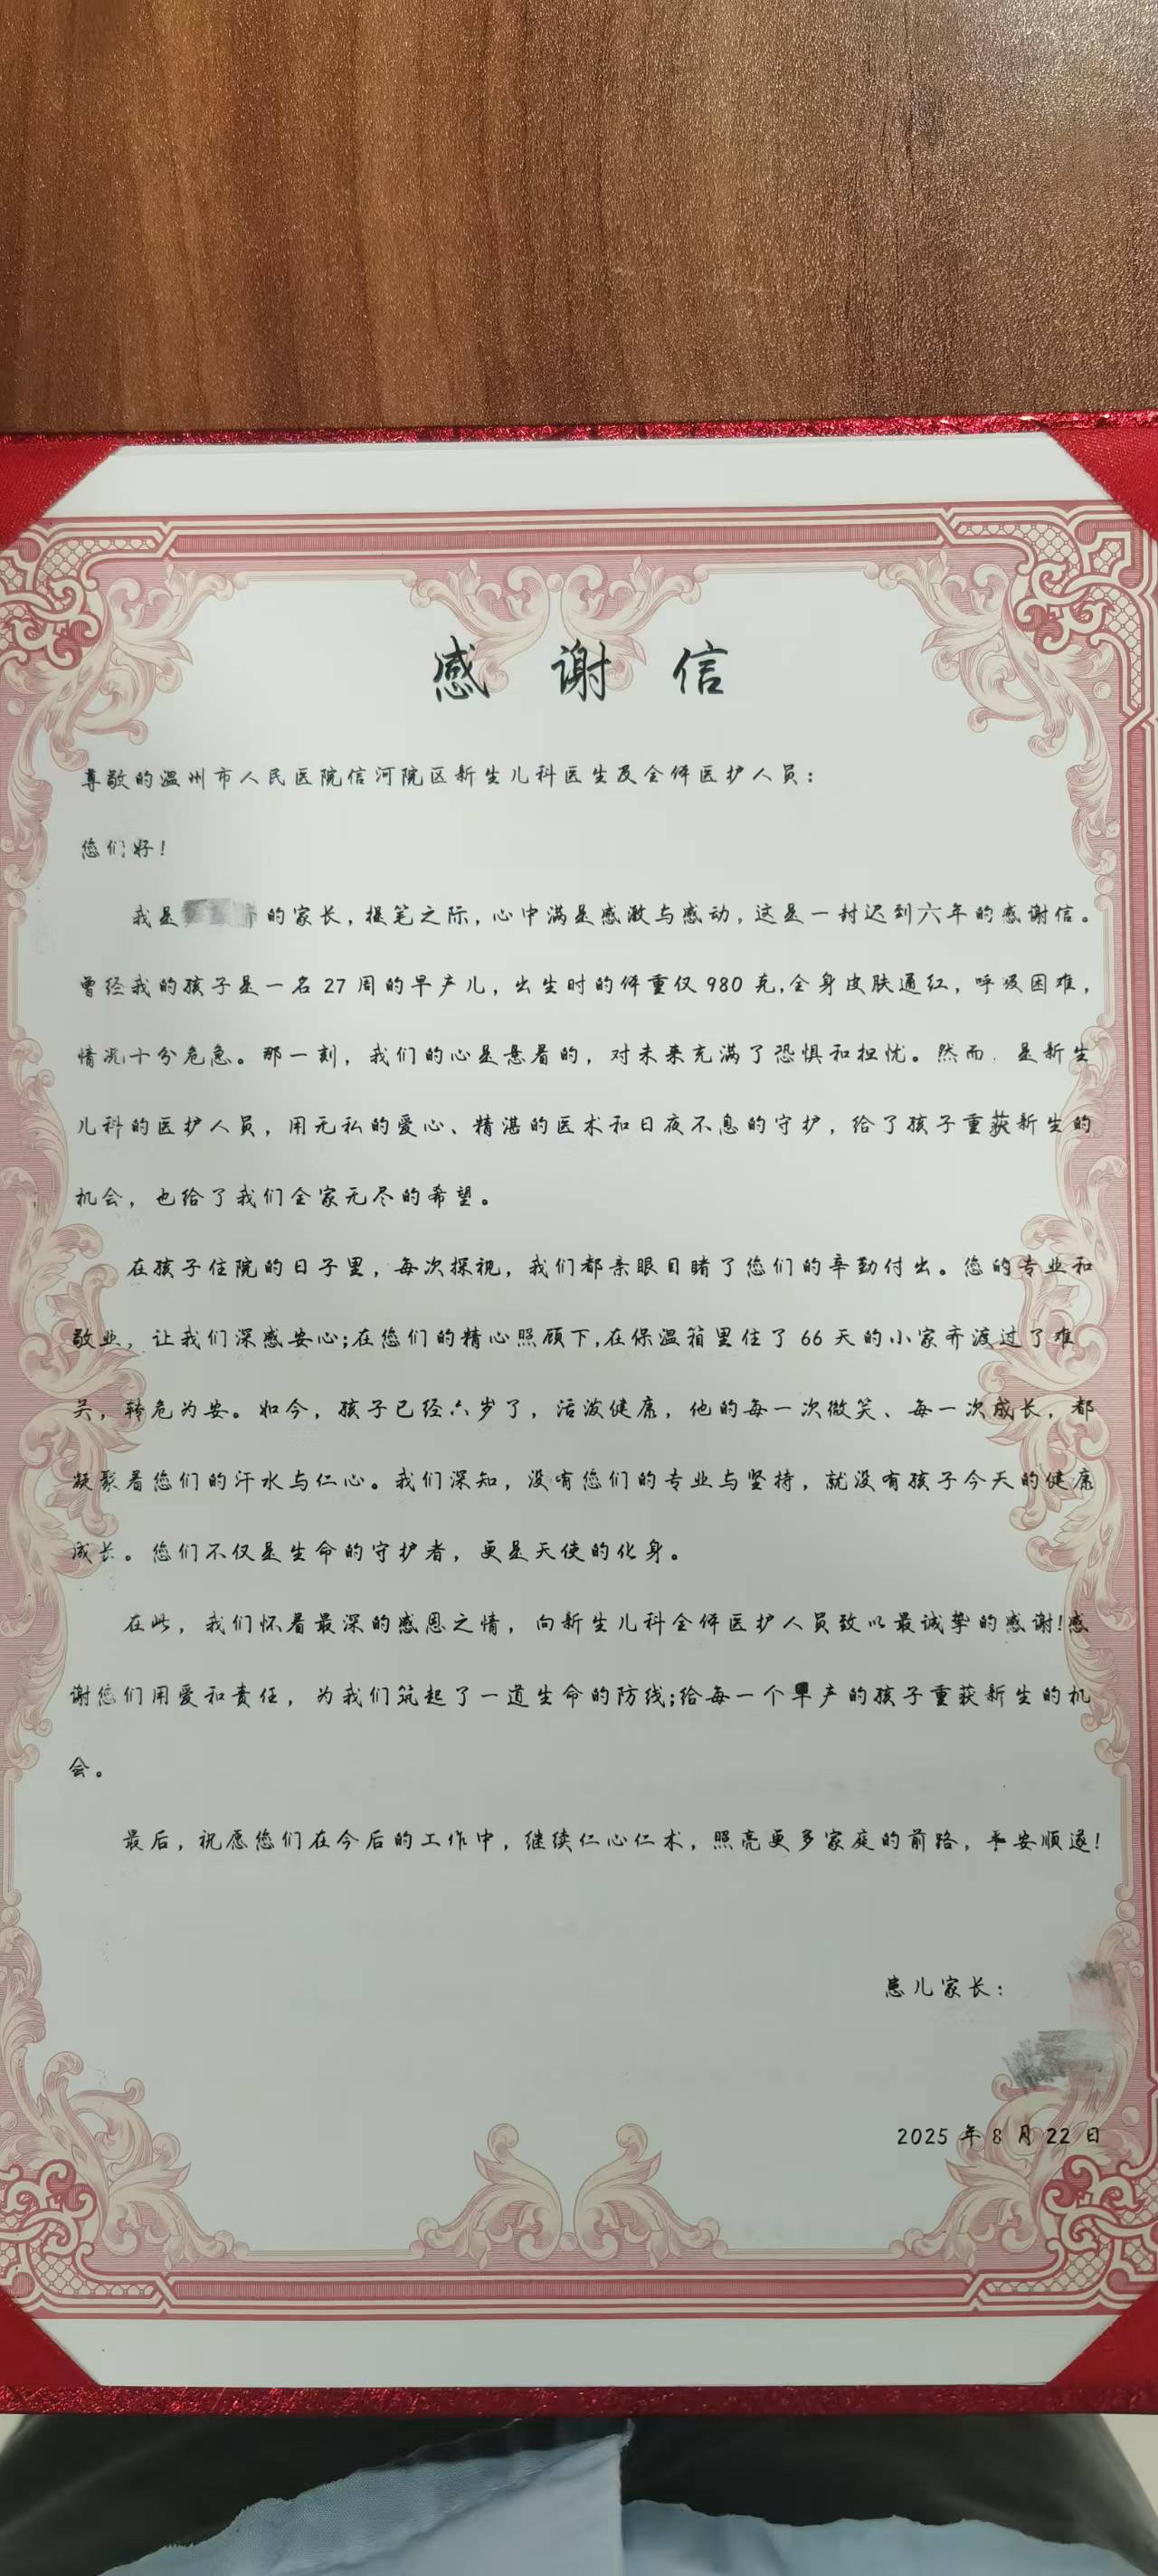 感谢信
尊敬的温州市人民医院信河院区新生儿科医生及全体医护人员：
您们好！
我是 的家长，提笔之际，心中满是感激与感动，这是一封迟到六年的感谢信。
曾经我的孩子是一名27周的早产儿，出生时的体重仅980克,全身皮肤通红，呼吸困难，
情况十分危急。那一刻，我们的心是悬着的，对未来充满了恐惧和担忧。然而，是新生
儿科的医护人员，用无私的爱心、精湛的医术和日夜不息的守护，给了孩子重获新生的
机会，也给了我们全家无尽的希望。
在孩子住院的日子里，每次探视，我们都亲眼目睹了您们的辛勤付出。您的专业和
敬业，让我们深感安心;在您们的精心照顾下,在保温箱里住了66天的小家齐渡过了难
关，转危为安。如今，孩子已经六岁了，活泼健康，他的每一次微笑、每一次成长，都
凝聚着您们的汗水与仁心。我们深知，没有您们的专业与坚持，就没有孩子今天的健康
成长。您们不仅是生命的守护者，更是天使的化身。
在此，我们怀着最深的感恩之情，向新生儿科全体医护人员致以最诚挚的感谢!感
谢您们用爱和责任，为我们筑起了一道生命的防线;给每一个早产的孩子重获新生的机
会。
最后，祝愿您们在今后的工作中，继续仁心仁术，照亮更多家庭的前路，平安顺遂！
患儿家长：
2025年8月22日